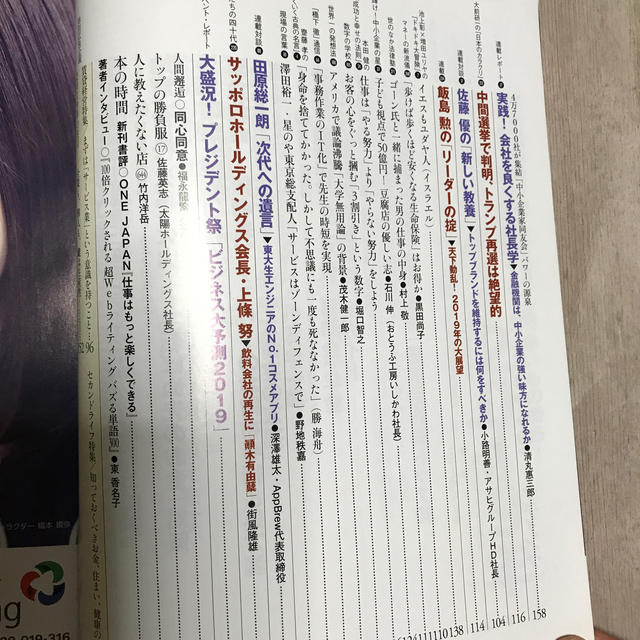 4万7000社が集結「中小企業家同友会」パワーの源泉
連載レポート
実践!会社を良くする社長学▼金融機関は、中小企業の強い味方になれるか●清丸惠三郎
158
大前研一の「日本のカラクリ」
中間選挙で判明、トランプ再選は絶望的
116
連載対談
佐藤 優の「新しい教養」▼トップブランドを維持するには何をすべきか●小路明善・アサヒグループHD社長
104
連載
飯島 勲の「リーダーの掟」▼天下動乱!2019年の大展望
114
池上彰×増田ユリヤの「ドキドキ大冒険」
イエスもユダヤ人(イスラエル)
138
マネーの新流儀
「歩けば歩くほど安くなる生命保険」はお得か●黒田尚子
世のなか法律塾
ゴーン氏と一緒に捕まった男の仕事の中身●村上 敬
輝け!中小企業の星
子ども視点で50億円!豆腐店の優しい志●石川 伸(おとうふ工房いしかわ社長)
本田 健の「成功と幸せの法則」
仕事は「やる努力」より「やらない努力」をしよう
数字の学校
お客の心をぐっと掴む「3割引き」という数字●堀口智之
世界一の発想法
アメリカで議論沸騰「大学無用論」の背景●茂木健一郎
「橋下 徹」通信
「事務作業のIT化」で先生の時短を実現
齋藤 孝の
「身命を捨ててかかった。しかして不思議にも一度も死ななかった」(勝 海舟)
現場の言葉
澤田裕一・星のや東京総支配人「サービスはゾーンディフェンスで」●野地秩嘉
連載対談
田原総一朗「次代への遺言」▼東大生エンジニアのNo.1コスメアプリ●深澤雄太・AppBrew代表取締役
サッポロホールディングス会長・上條 努▼飲料会社の再生に「顔木有由蘖」●街風隆雄
ベント・レポート
大盛況!プレジデント祭「ビジネス大予測2019」
人間邂逅 同心同意●福永龍繁
トップの勝負服 ⑰佐藤英志(太陽ホールディングス社長)
人に教えたくない店 竹内洋岳
本の時間 新刊書評 ONE JAPAN『仕事はもっと楽しくできる』
著者インタビュー『100倍クリックされる 超Webライティング バズる単語300』●東 香名子
「サービス業」という意識を持つこと…96
セカンドライフ特集 知っておくべきお金、住まい、健康の
019-316